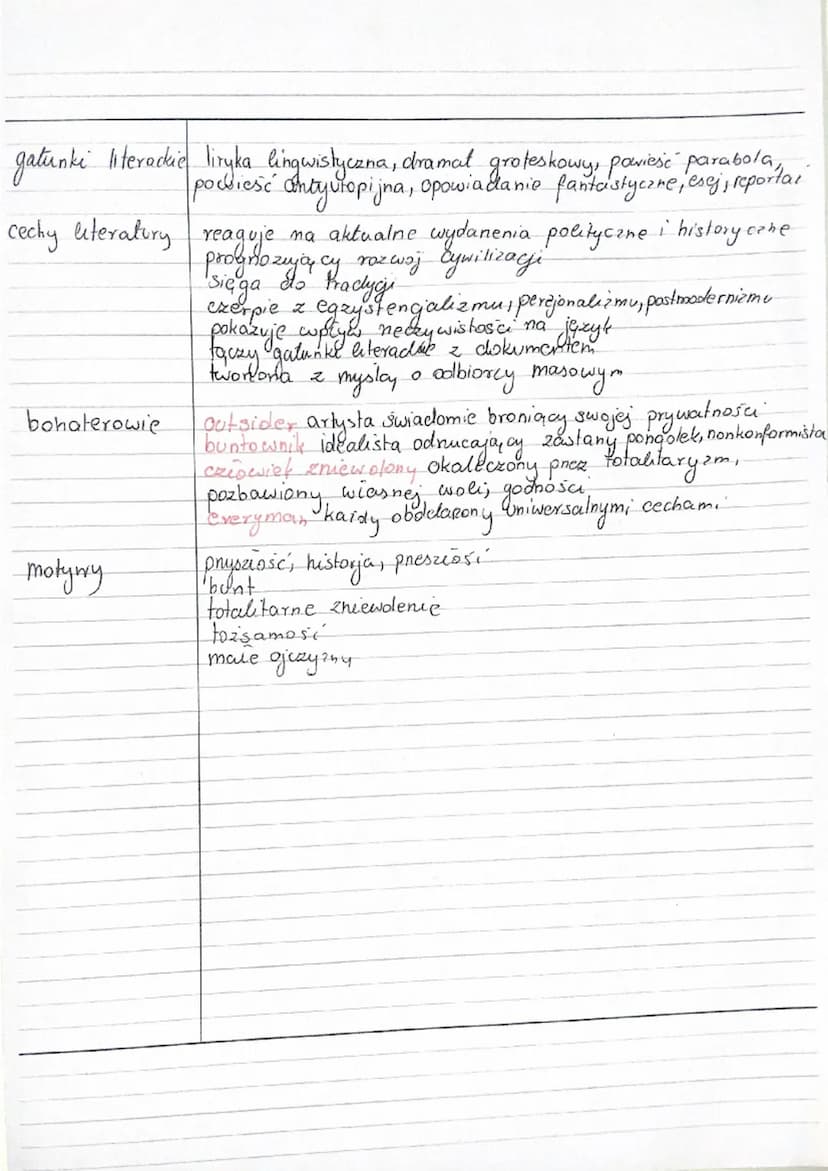 gatunki literackie liryka lingwistyczna, dramat groteskowy, powieść parabola,
powieść antyutopijna, opowiadanie fantastyczne, esej, reportaż
cechy literatury reaguje na aktualne wydarzenia polityczne i historyczne
prognozujący rozwój cywilizacji
sięga do tradycji
czerpie z egzystencjalizmu, personalizmu, postmodernizmu
pokazuje wpływ rzeczywistości na język
łączy gatunki literackie z dokumentem
tworzona z myślą o odbiorcy masowym
bohaterowie outsider artysta świadomie broniący swojej prywatności
buntownik idealista odrzucający zastany porządek, nonkonformista
człowiek zniewolony okaleczony przez totalitaryzm,
pozbawiony własnej woli, godności
everyman każdy obdarzony uniwersalnymi cechami
motywy przyszłość, historja, przeszłość
bunt
totalitarne zniewolenie
tożsamość
małe ojczyzny